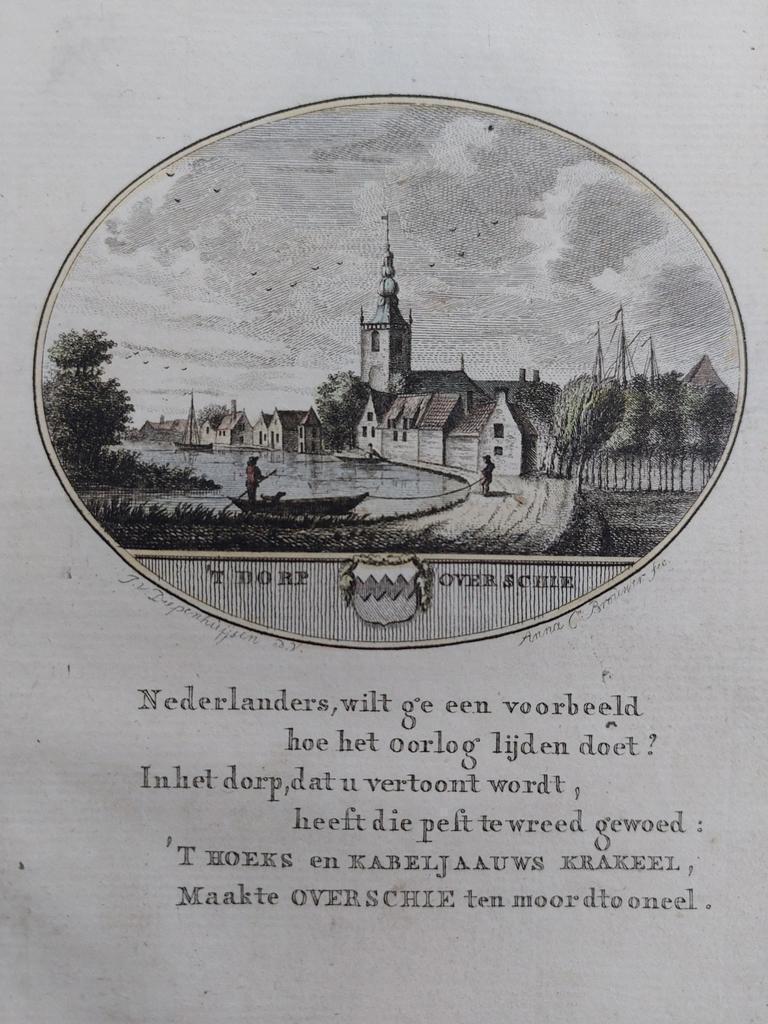 'T DORP OVERSCHIE
Anna C. Brouwer fec.
Nederlanders, wilt ge een voorbeeld
hoe het oorlog lijden doet?
In het dorp, dat u vertoont wordt,
heeft die peſt te wreed gewoed:
'T HOEKS en KABELJAAUWS KRAKEEL,
Maakte OVERSCHIE ten moordtooneel.